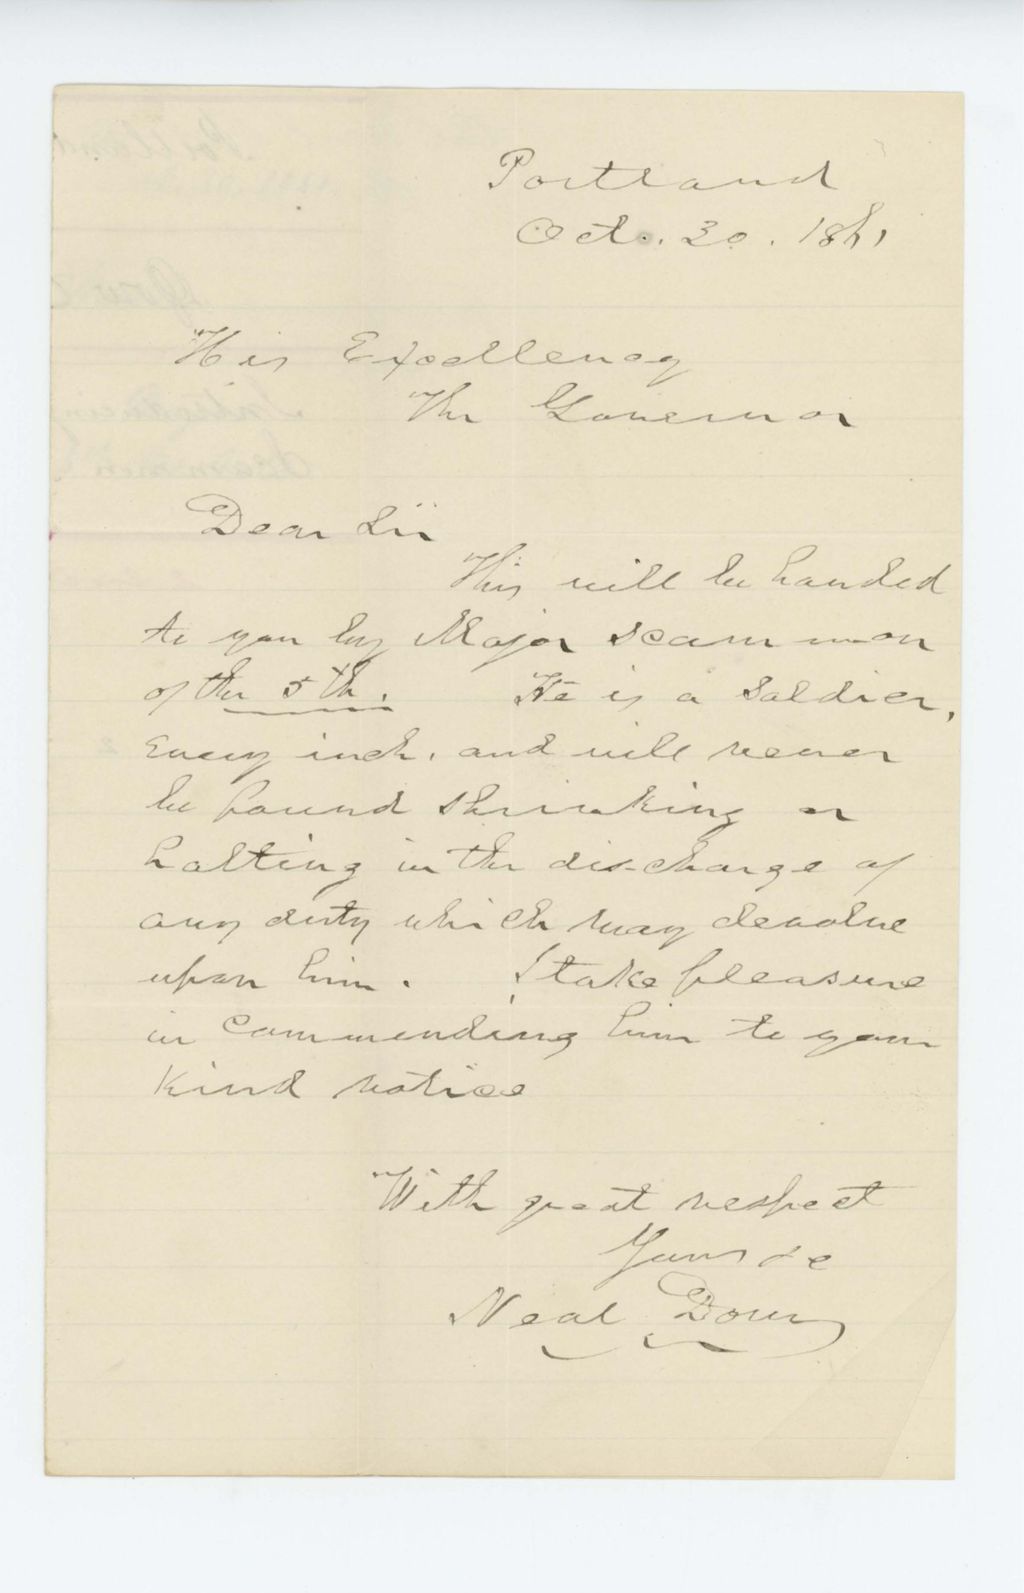 Portland
Oct. 30. 1861
His Excellency
The Governor
Dear Sir
This will be handed
to you by Major Scammon
of the 5th. He is a Soldier,
Every inch, and will never
be found shrinking or
halting in the discharge of
any duty which may devolve
upon him. I take pleasure
in Commending him to your
Kind notice
With great respect
Yours &c
Neal Dow